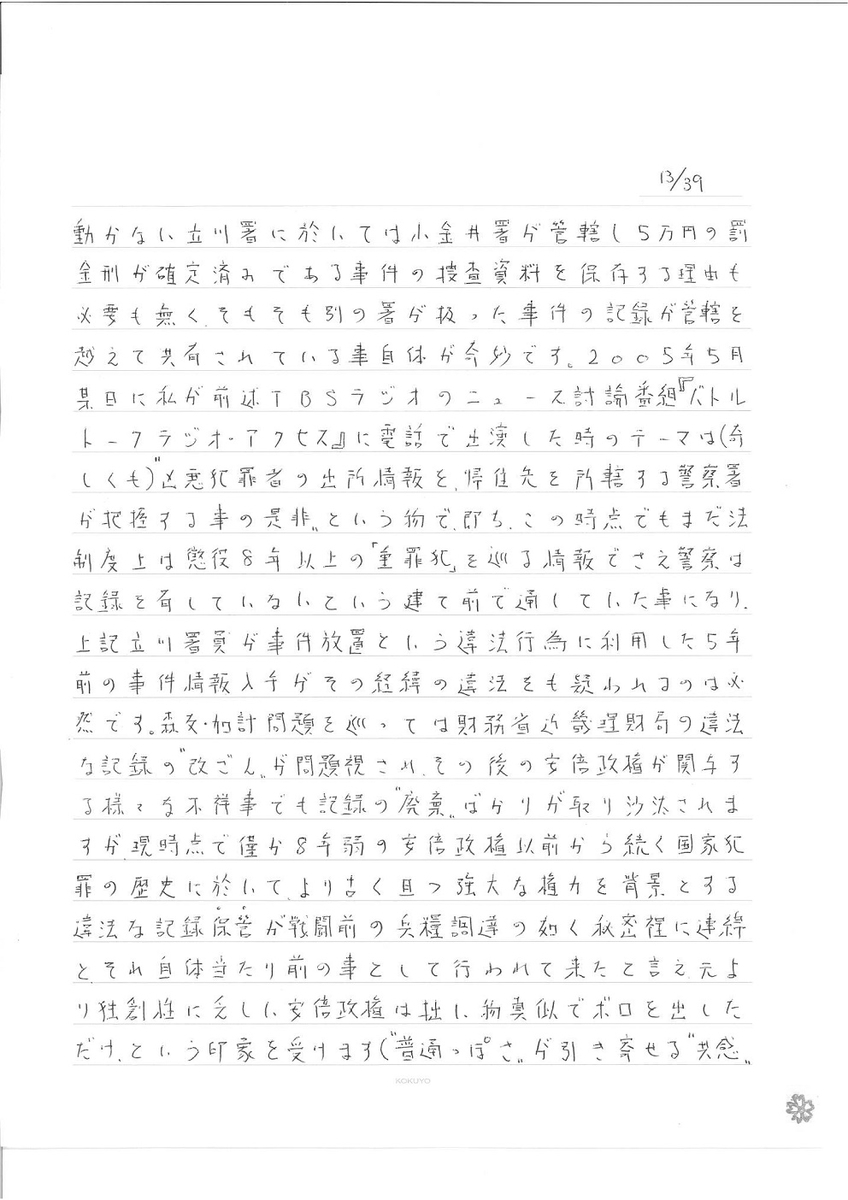 13/39
動かない立川署に於いては小金井署が管轄し5万円の罰
金刑が確定済みである事件の捜査資料を保存する理由も
必要も無く、そもそも別の署が扱った事件の記録が管轄を
越えて共有されている事自体が奇妙です。2005年5月
某日に私が前述TBSラジオのニュース討論番組『バトル
トークラジオ・アクセス』に電話で出演した時のテーマは(奇
しくも)〝凶悪犯罪者の出所情報を、帰住先を所轄する警察署
が把握する事の是非〟という物で、即ち、この時点でもまだ法
制度上は懲役8年以上の「重罪犯」を巡る情報でさえ警察は
記録を有していないという建て前で通していた事になり、
上記立川署員が事件放置という違法行為に利用した5年
前の事件情報入手がその経緯の違法をも疑われるのは必
然です。森友・加計問題を巡っては財務省近畿理財局の違法
な記録の〝改ざん〟が問題視され、その後の安倍政権が関与す
る様々な不祥事でも記録の〝廃棄〟ばかりが取り沙汰されま
すが、現時点で僅か8年弱の安倍政権以前から続く国家犯
罪の歴史に於いて、より古く且つ強大な権力を背景とする
違法な記録保管が戦闘前の兵糧調達の如く秘密裡に連綿
と、それ自体当たり前の事として行われて来たと言え、元よ
り独創性に乏しい安倍政権は拙い物真似でボロを出した
だけ、という印象を受けます(〝普通っぽさ〟が引き寄せる〝共感〟
KOKUYO